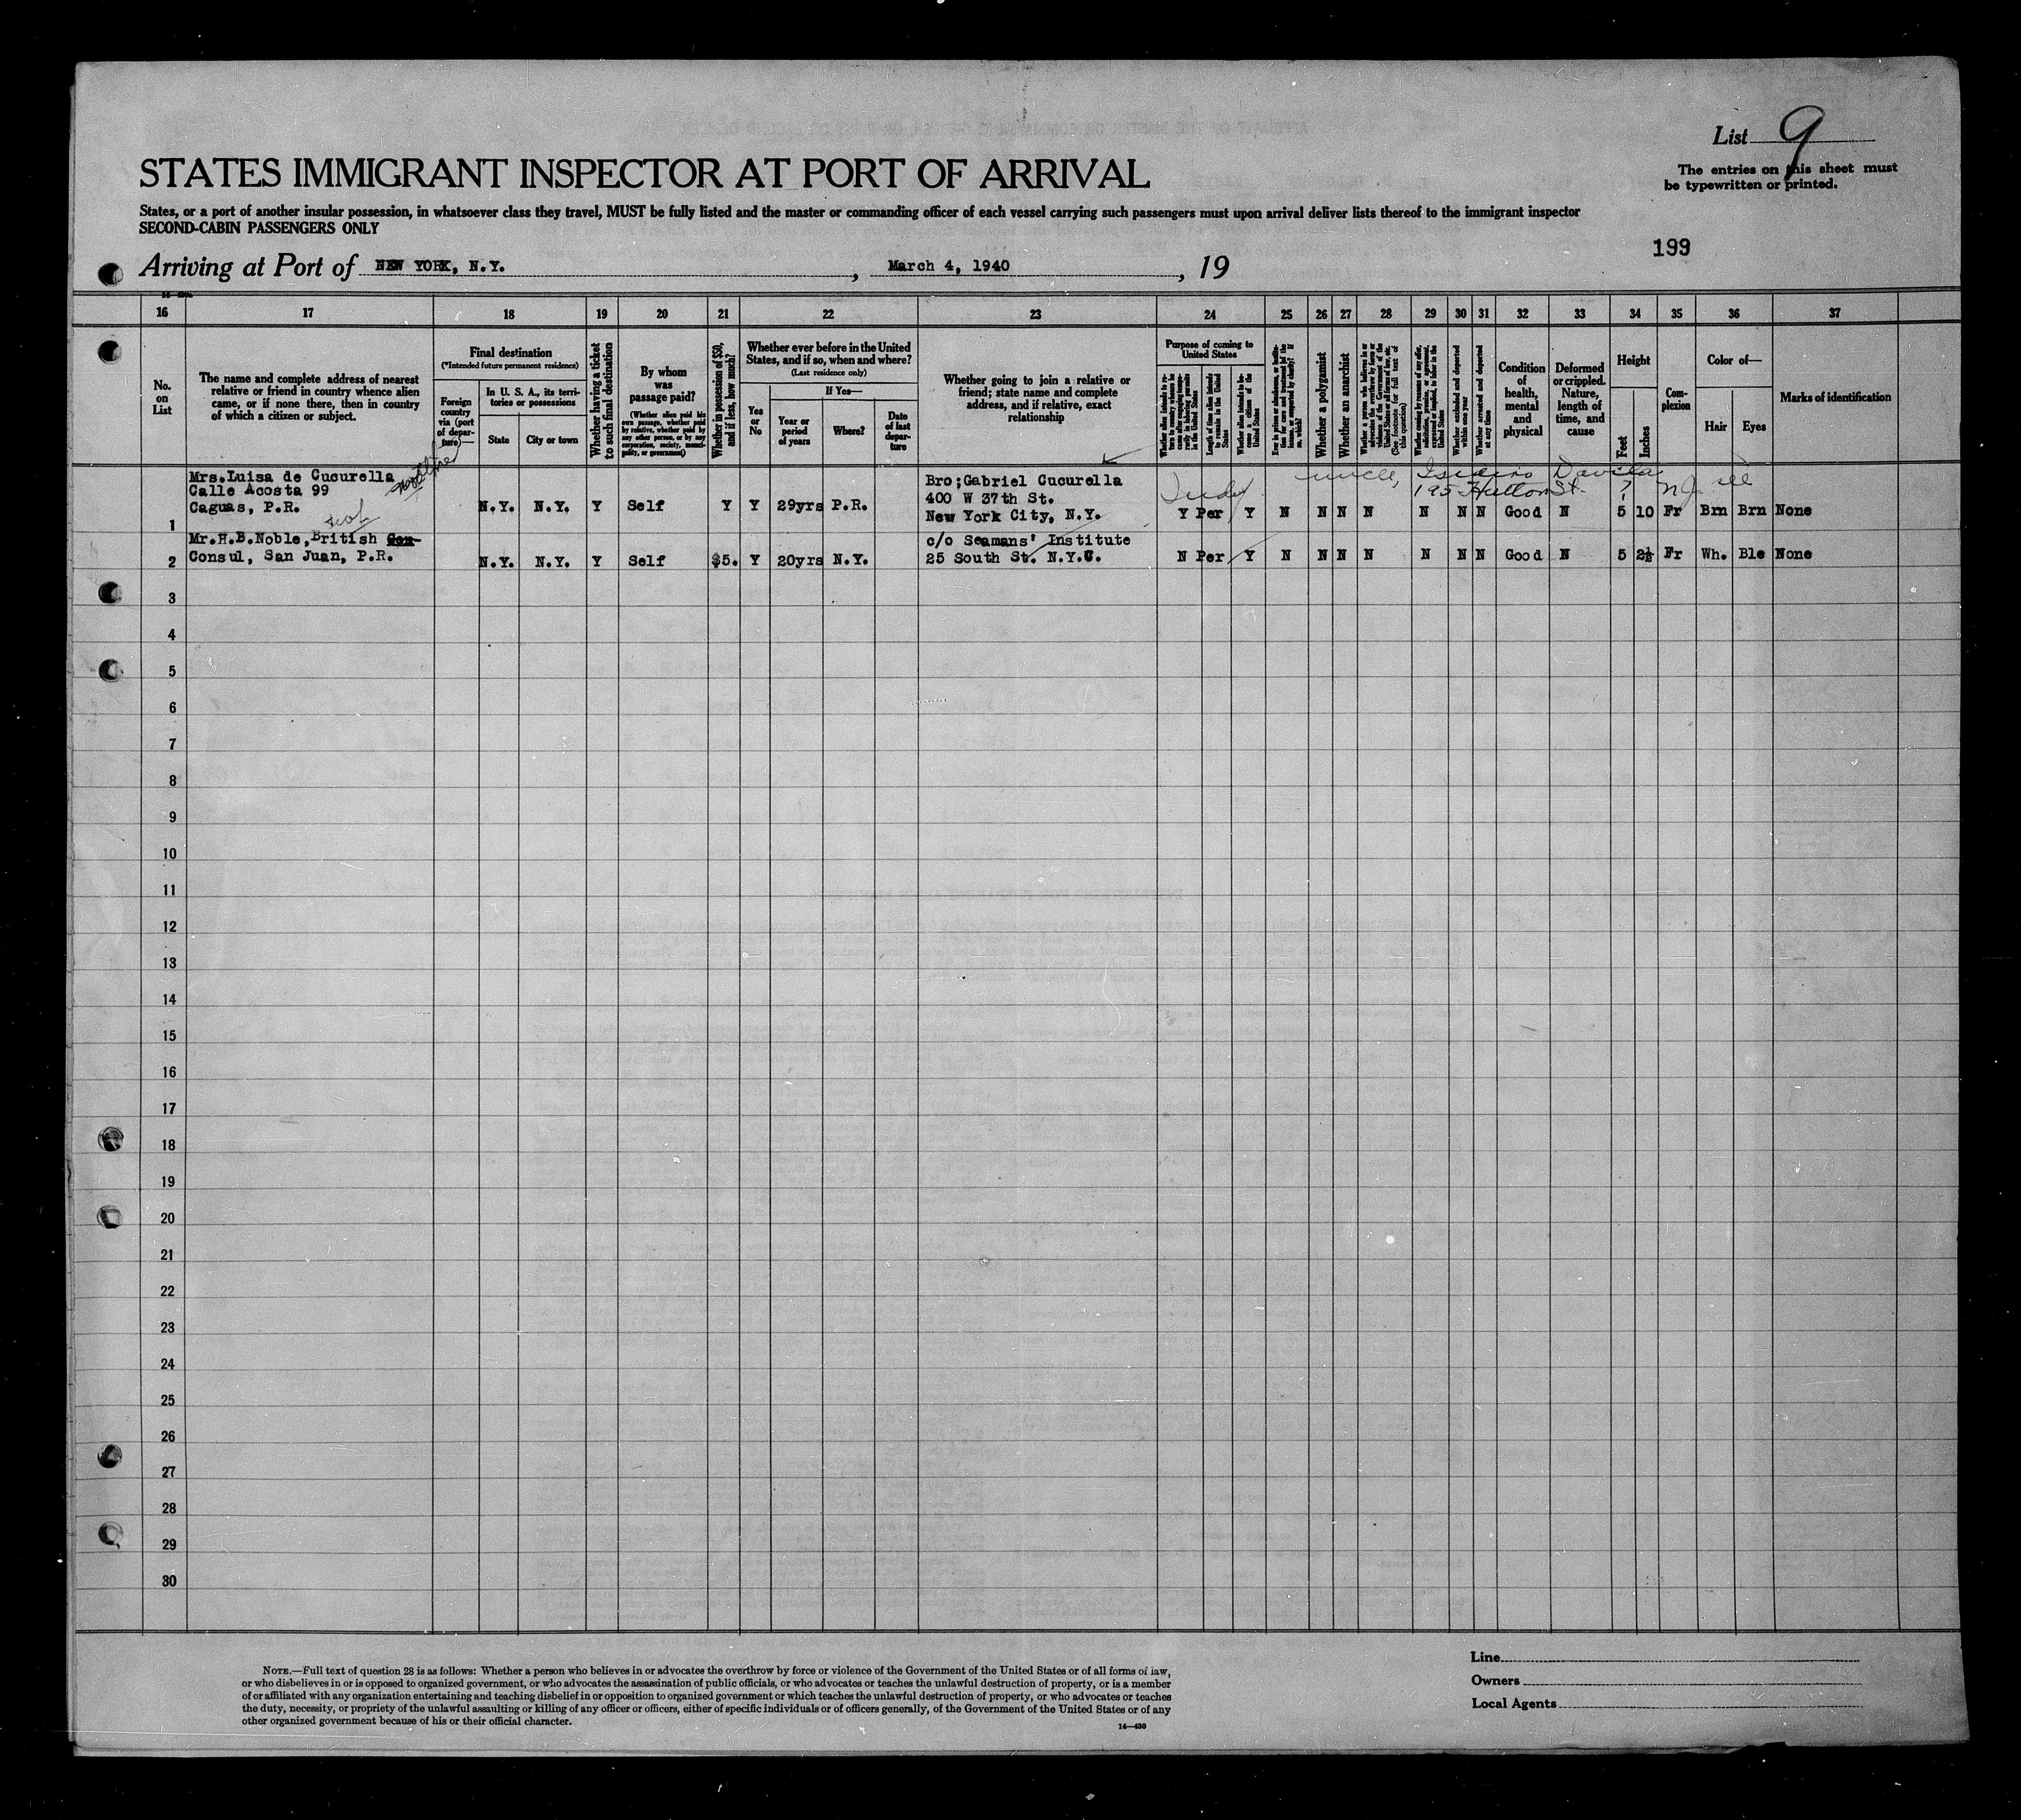 List 9
The entries on this sheet must
be typewritten or printed.
STATES IMMIGRANT INSPECTOR AT PORT OF ARRIVAL
States, or a port of another insular possession, in whatsoever class they travel, MUST be fully listed and the master or commanding officer of each vessel carrying such passengers must upon arrival deliver lists thereof to the immigrant inspector
SECOND-CABIN PASSENGERS ONLY
199
Arriving at Port of NEW YORK, N.Y., March 4, 1940, 19
16 17 18 19 20 21 22 23 24 25 26 27 28 29 30 31 32 33 34 35 36 37
No.
on
List
The name and complete address of nearest
relative or friend in country whence alien
came, or if none there, then in country
of which a citizen or subject.
Final destination
(*Intended future permanent residence)
Foreign
country
via (port
of depar-
ture)—
In U. S. A., its terri-
tories or possessions
State
City or town
Whether having a ticket
to such final destination
By whom
was
passage paid?
(Whether alien paid his
own passage, whether paid
by relative, whether paid by
any other person, or by any
corporation, society, munici-
pality, or government)
Whether in possession of $50,
and if less, how much?
Whether ever before in the United
States, and if so, when and where?
(Last residence only)
Yes
or
No
If Yes—
Year or
period
of years
Where?
Date
of last
depar-
ture
Whether going to join a relative or
friend; state name and complete
address, and if relative, exact
relationship
Purpose of coming to
United States
Length of time alien intends
to remain in the United
States
Whether alien intends to be-
come a citizen of the
United States
Whether a polygamist
Whether an anarchist
Whether arrested and deported
at any time
Condition
of
health,
mental
and
physical
Deformed
or crippled.
Nature,
length of
time, and
cause
Height
Feet
Inches
Com-
plexion
Color of—
Hair
Eyes
Marks of identification
uncle, Isidiro Davila
195 Hullon St. ? NJ see
Mrs.Luisa de Cucurella
Calle Acosta 99
Caguas, P.R.
1 N.Y. N.Y. Y Self Y Y 29yrs P.R.
Bro;Gabriel Cucurella
400 W 37th St.
New York City, N.Y.
Y Per Y N N N N N N N Good N 5 10 Fr Brn Brn None
Mr.H.B.Noble,British Con-
Consul, San Juan, P.R.
2 N.Y. N.Y. Y Self $5. Y 20yrs N.Y.
c/o Seamans' Institute
25 South St. N.Y.C.
N Per Y N N N N N N N Good N 5 2½ Fr Wh. Ble None
3
4
5
6
7
8
9
10
11
12
13
14
15
16
17
18
19
20
21
22
23
24
25
26
27
28
29
30
NOTE.—Full text of question 28 is as follows: Whether a person who believes in or advocates the overthrow by force or violence of the Government of the United States or of all forms of law,
or who disbelieves in or is opposed to organized government, or who advocates the assassination of public officials, or who advocates or teaches the unlawful destruction of property, or is a member
of or affiliated with any organization entertaining and teaching disbelief in or opposition to organized government or which teaches the unlawful destruction of property, or who advocates or teaches
the duty, necessity, or propriety of the unlawful assaulting or killing of any officer or officers, either of specific individuals or of officers generally, of the Government of the United States or of any
other organized government because of his or their official character.
14—430
Line
Owners
Local Agents